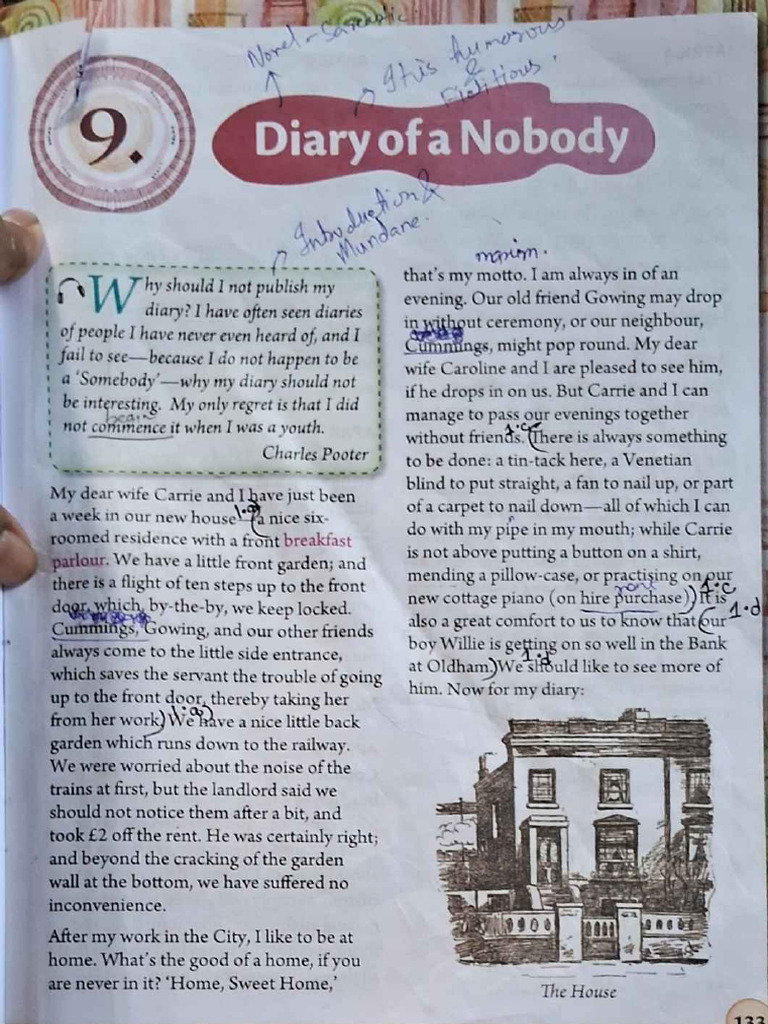 Novel - Sarcastic.
It is humorous
&
Fictitious.
9.
Diary of a Nobody
Introduction &
Mundane.
Why should I not publish my
diary? I have often seen diaries
of people I have never even heard of, and I
fail to see—because I do not happen to be
a 'Somebody'—why my diary should not
be interesting. My only regret is that I did
began
not commence it when I was a youth.
Charles Pooter
My dear wife Carrie and I have just been
a week in our new house 1.a (a nice six-
roomed residence with a front breakfast
parlour. We have a little front garden; and
there is a flight of ten steps up to the front
door, which, by-the-by, we keep locked.
Cummings, Gowing, and our other friends
always come to the little side entrance,
which saves the servant the trouble of going
up to the front door, thereby taking her
from her work) We have a nice little back
1.a
garden which runs down to the railway.
We were worried about the noise of the
trains at first, but the landlord said we
should not notice them after a bit, and
took £2 off the rent. He was certainly right;
and beyond the cracking of the garden
wall at the bottom, we have suffered no
inconvenience.
After my work in the City, I like to be at
home. What's the good of a home, if you
are never in it? 'Home, Sweet Home,'
maxim.
that's my motto. I am always in of an
evening. Our old friend Gowing may drop
in without ceremony, or our neighbour,
Cummings, might pop round. My dear
wife Caroline and I are pleased to see him,
if he drops in on us. But Carrie and I can
manage to pass our evenings together
1.c
without friends. (There is always something
to be done: a tin-tack here, a Venetian
blind to put straight, a fan to nail up, or part
of a carpet to nail down—all of which I can
do with my pipe in my mouth; while Carrie
is not above putting a button on a shirt,
mending a pillow-case, or practising on our
1.c
new cottage piano (on hire purchase)) It is
1.d
also a great comfort to us to know that (our
boy Willie is getting on so well in the Bank
1.d
at Oldham) We should like to see more of
him. Now for my diary:
The House
133